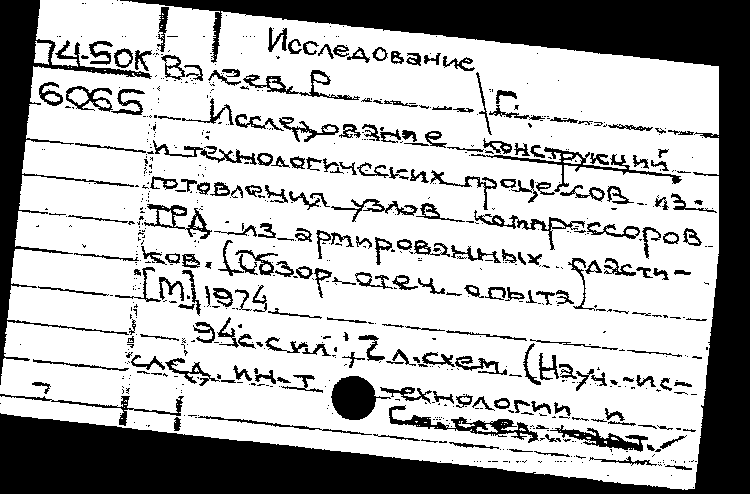 Исследование
74-50К Валеев, Р Г.
6065 Исследование конструкций
и технологических процессов из-
готовления узлов компрессоров
ТРД из армированных пласти-
ков. (Обзор. отеч. опыта)
[М.], 1974.
94 с. с ил.; 2 л. схем. (Науч.-ис-
след. ин-т технологии и
7 См. след. карт.